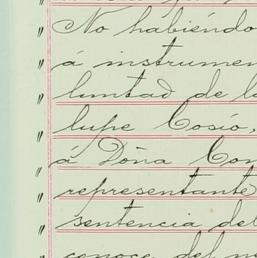 No habiendo
á instrumen
luntad de l
lupe Cosío,
á Doña Con
representante
sentencia del
conoce del m